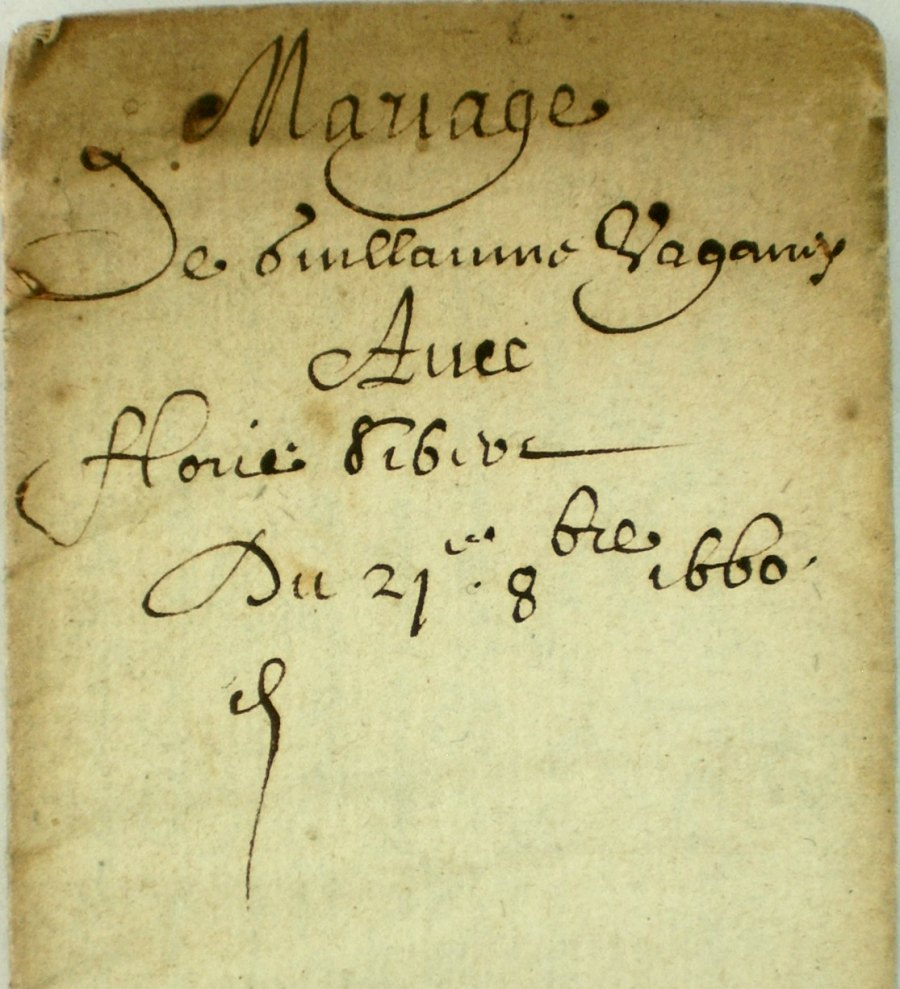 Mariage
De Guillaume Vaganay
Auec
fflorie
Du 21e. 8bre 1660.